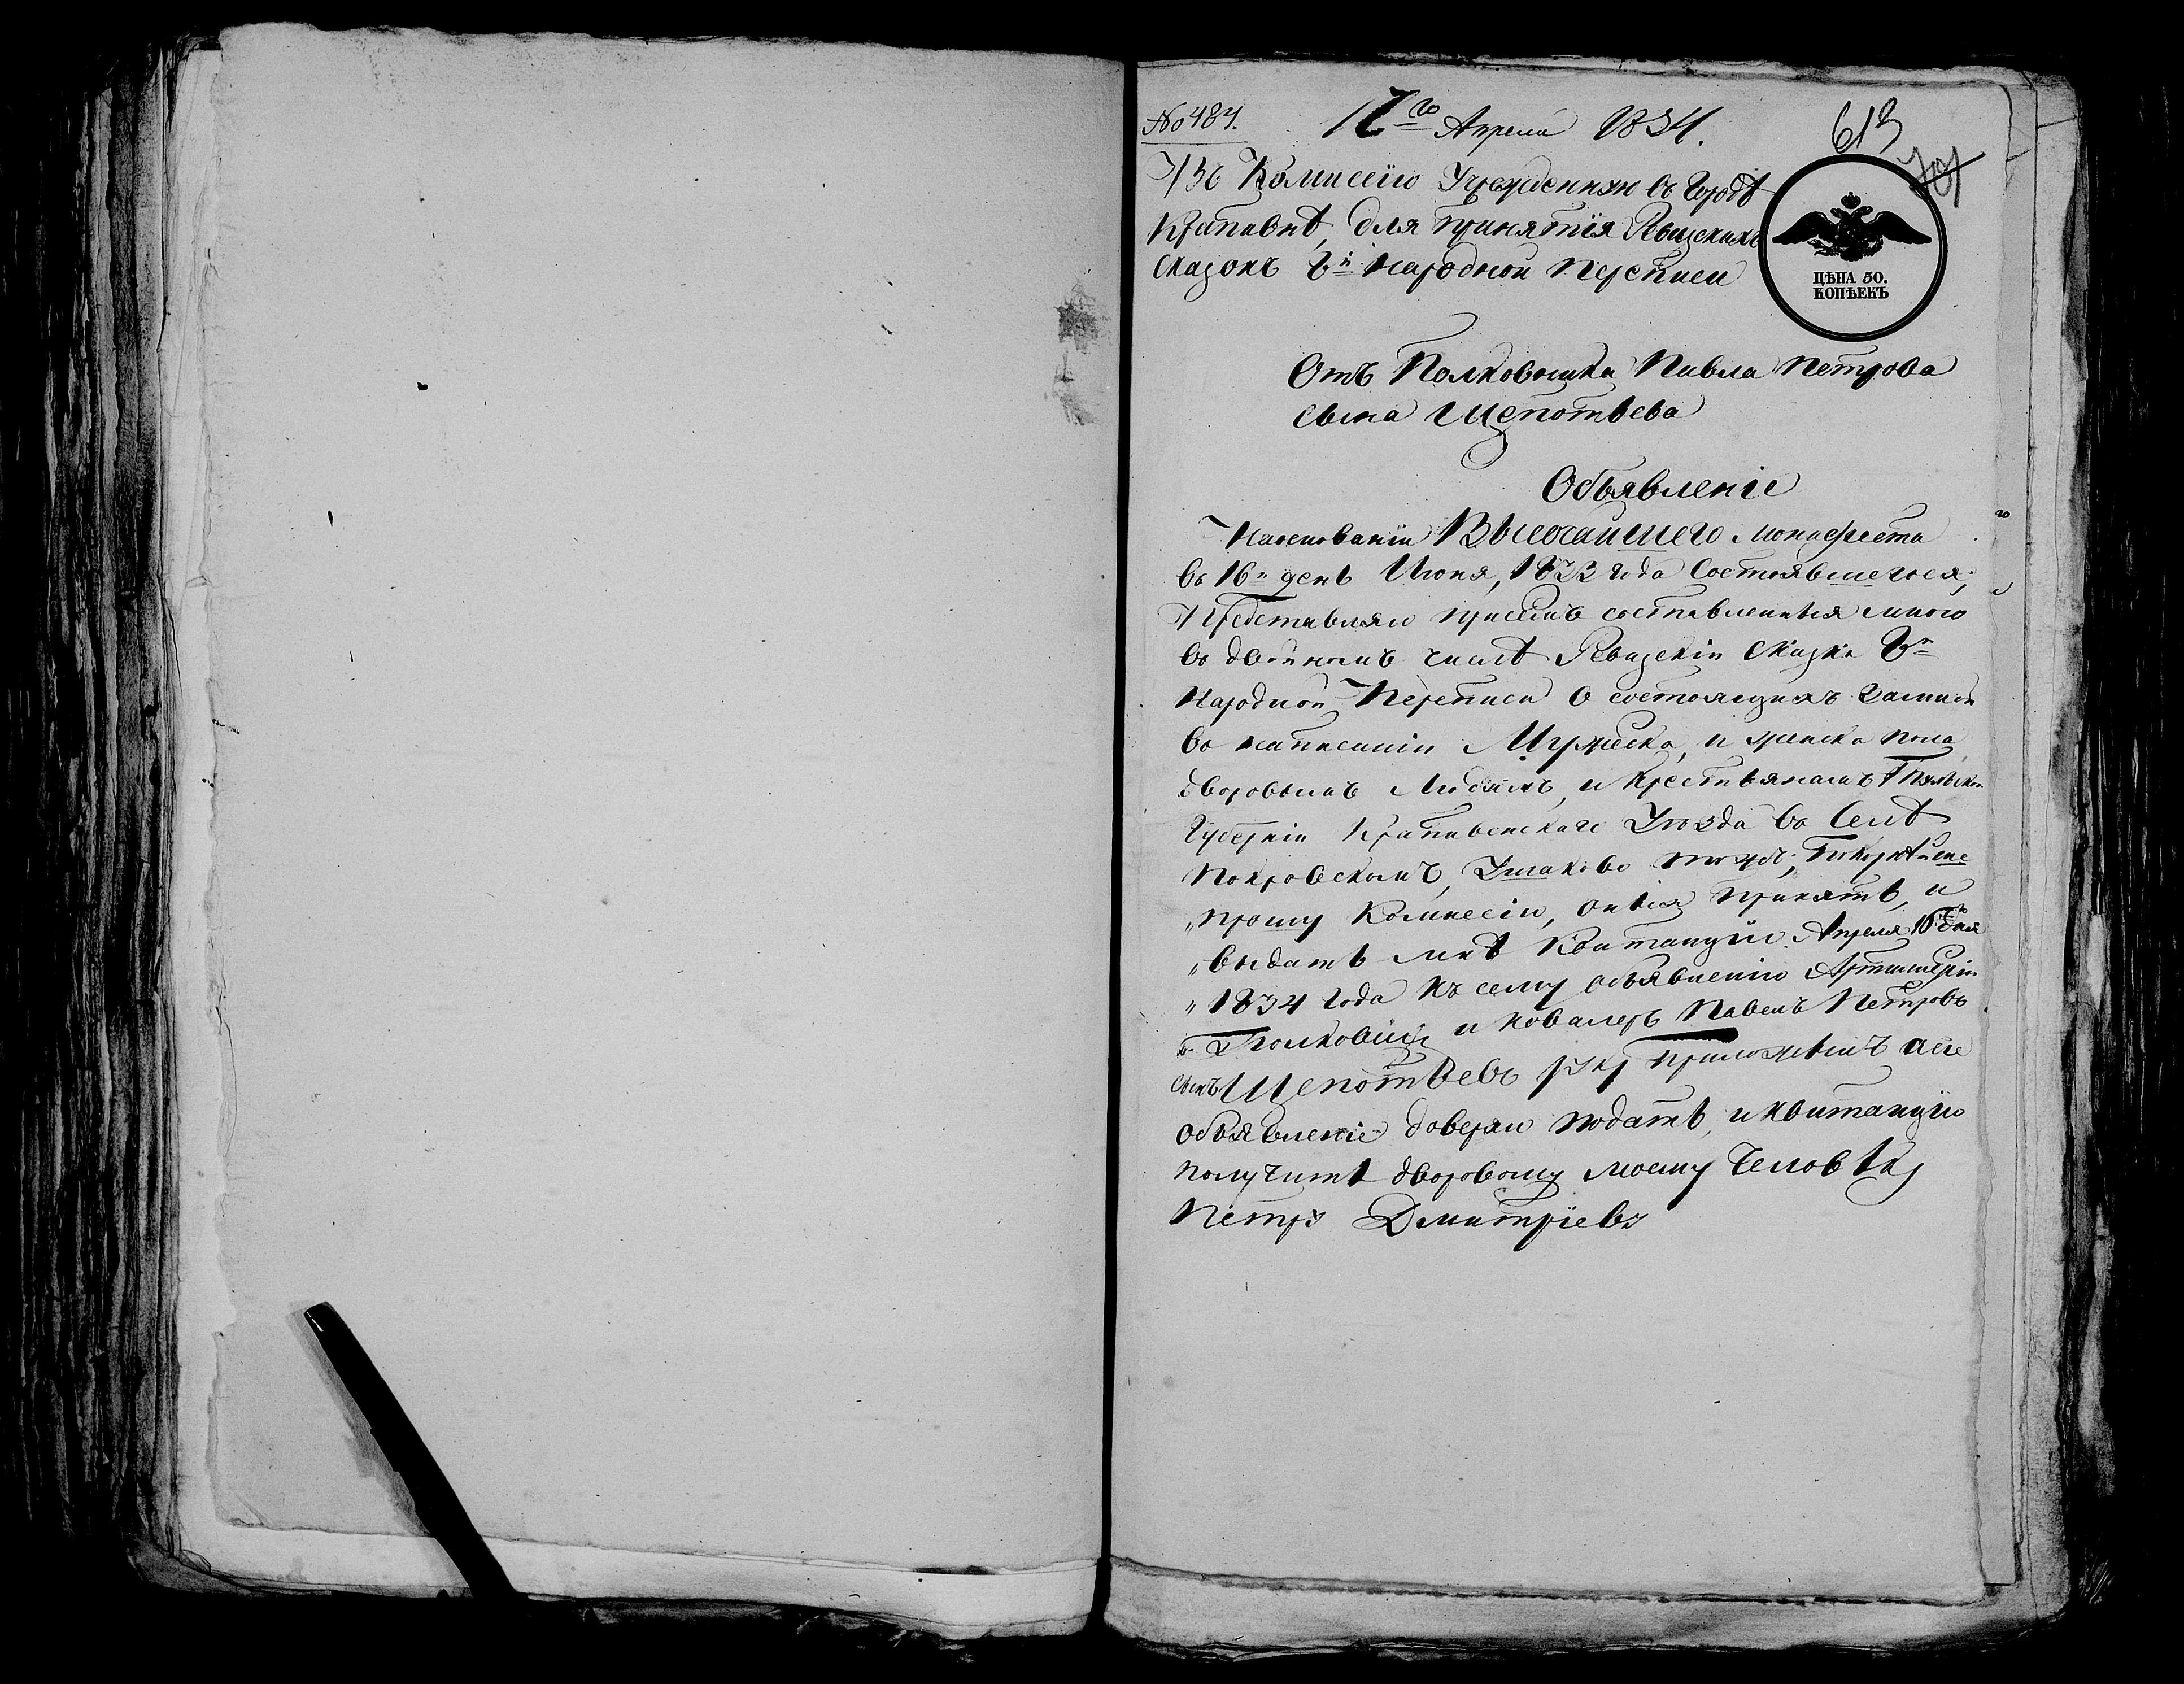 № 484.
17го Апреля 1834.
613
701
Въ Комисѣiю Учрежденнюю въ Городѣ
Крапивнѣ, для принятiя Ревизскихъ
сказокъ 8й народной переписи
ЦѢНА 50.
КОПѢЕКЪ
Отъ Полковника Павла Петрова
сына Щепотьева
Объявленiе
Наоснованiи Высочайшего Монифеста
въ 16й день Июня, 1833 года Состоявшегося,
Представляю присемъ составленныя мною
въ двойномъ числѣ Ревизскiи Сказки 8й
Народной Переписи о состоящихъ Замной
во написанiи Мужеска, и женска пола
дворовымъ Людямъ, и крестьянамъ Тульской
Губернiи Крапивенскаго Уезда въ Селѣ
Покровскомъ, Ушаково тожъ; Покорнѣйше
прошу Комисѣiю, оныя принять, и
выдать мнѣ Квитанцiю Апреля 16го дня
1834 года Къ сему объявленiю Артиллерiи
Полковникъ и кавалеръ Павелъ Петровъ
сынъ Щепотьевъ руку приложилъ асiе
объявленiе доверяю подать, и квитанцiю
получить дворовому моему Человѣку
Петру Дмитрiеву